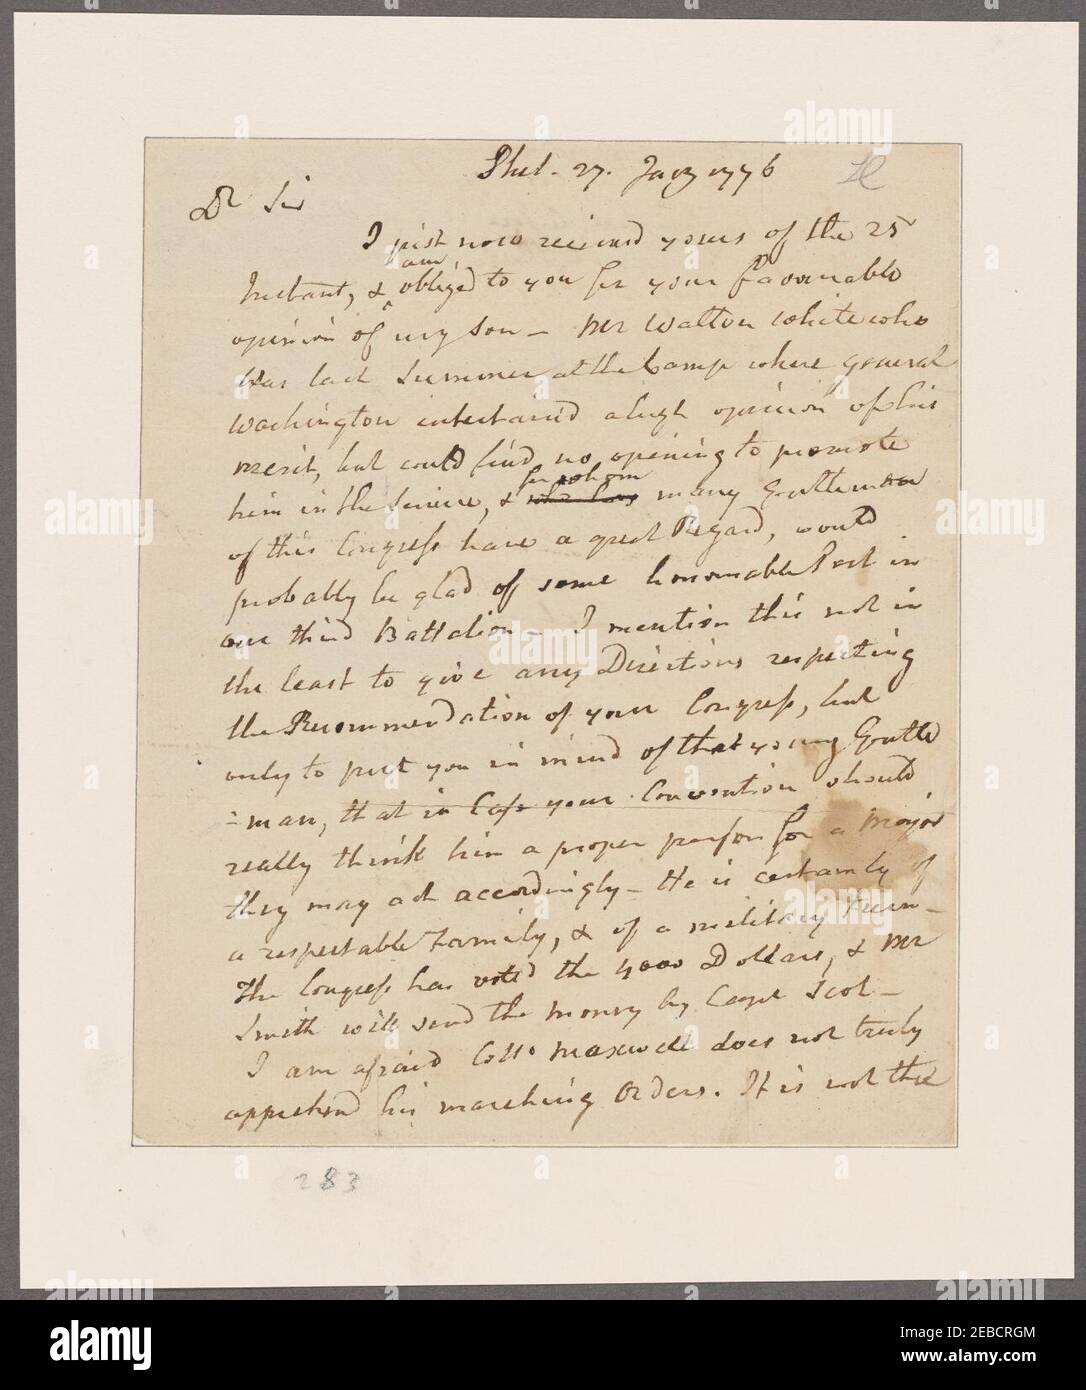 Phil. 27. Jary 1776
Dr Sir
I just now received yours of the 25
Instant, & am obliged to you for your favourable
opinion of my Son — Mr Walton White who
was last Summer at the Camp where General
Washington entertain'd a high opinion of his
merit, but could find no opening to promote
him in the Service, & for whom many Gentlemen
of this Congress have a great Regard, would
probably be glad of some honourable Post in
our third Battalion — I mention this not in
the least to give any Directions respecting
the Recommendation of your Congress, but
only to put you in mind of that young Gentle
=man, that in Case your Convention should
really think him a proper person for a Major
they may act accordingly — He is certainly of
a respectable Family, & of a military Turn —
The Congress has voted the 4000 Dollars, & Mr
Smith will send the money by Capt Scot —
I am afraid Collo Maxwell does not truly
apprehend his marching Orders. It is not the
283
alamy
Image ID: 2EBCRGM
www.alamy.com